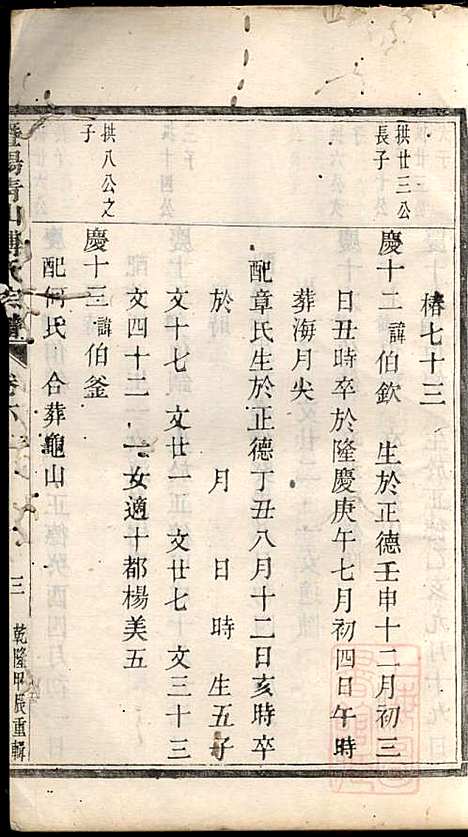 椿七十三
拱廿三公
長子
慶十二 諱伯欽 生於正德壬申十二月初三
日丑時卒於隆慶庚午七月初四日午時
葬海月尖
配章氏生於正德丁丑八月十二日亥時卒
於 月 日 時 生五子
文十七 文廿一 文廿七 文三十三
文四十二 一女適十都楊美五
拱八公之
子
慶十三 諱伯釜
配何氏 合葬龜山
暨陽青山 氏宗譜 卷六 三 乾隆甲辰重輯